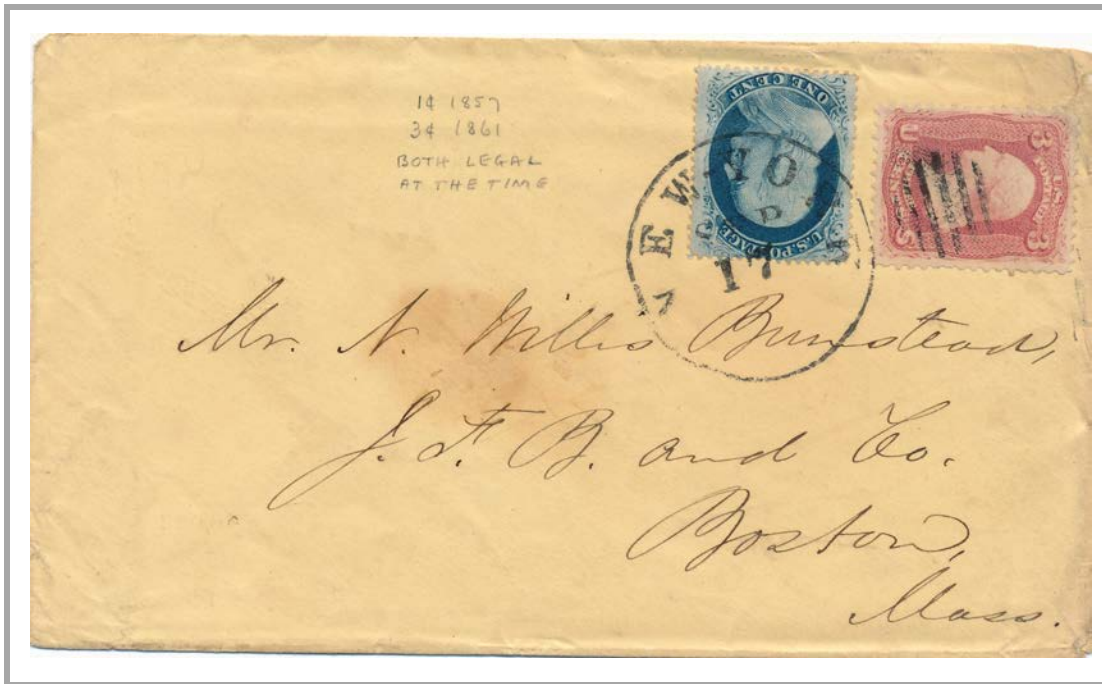 1¢ 1857
3¢ 1861
BOTH LEGAL
AT THE TIME
ONE CENT
U.S. POSTAGE
3 U.S. POSTAGE 3
U S
NEW YO
17
Mr. N. Willis Bumstead,
J. F. B. and Co.
Boston,
Mass.